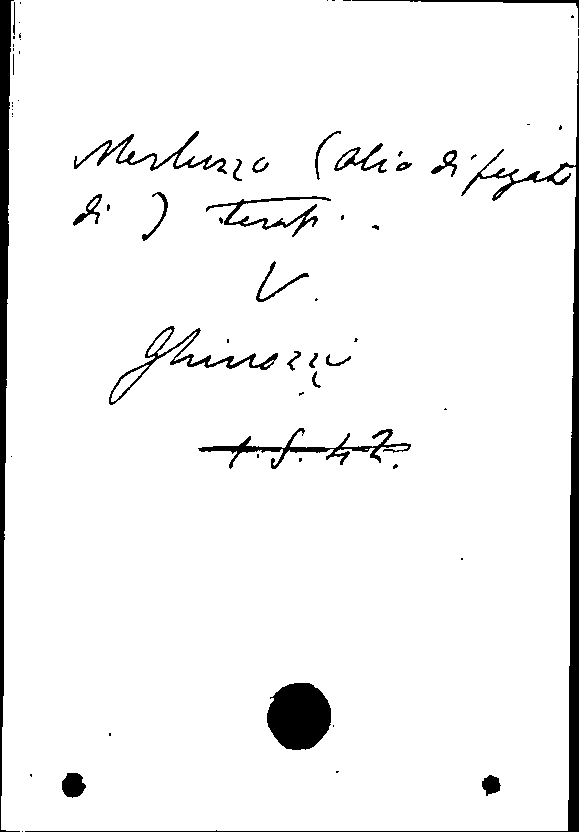 Merluzzo (Olio di fegato
di) Terap.
V.
Ghinozzi
1.5.42.